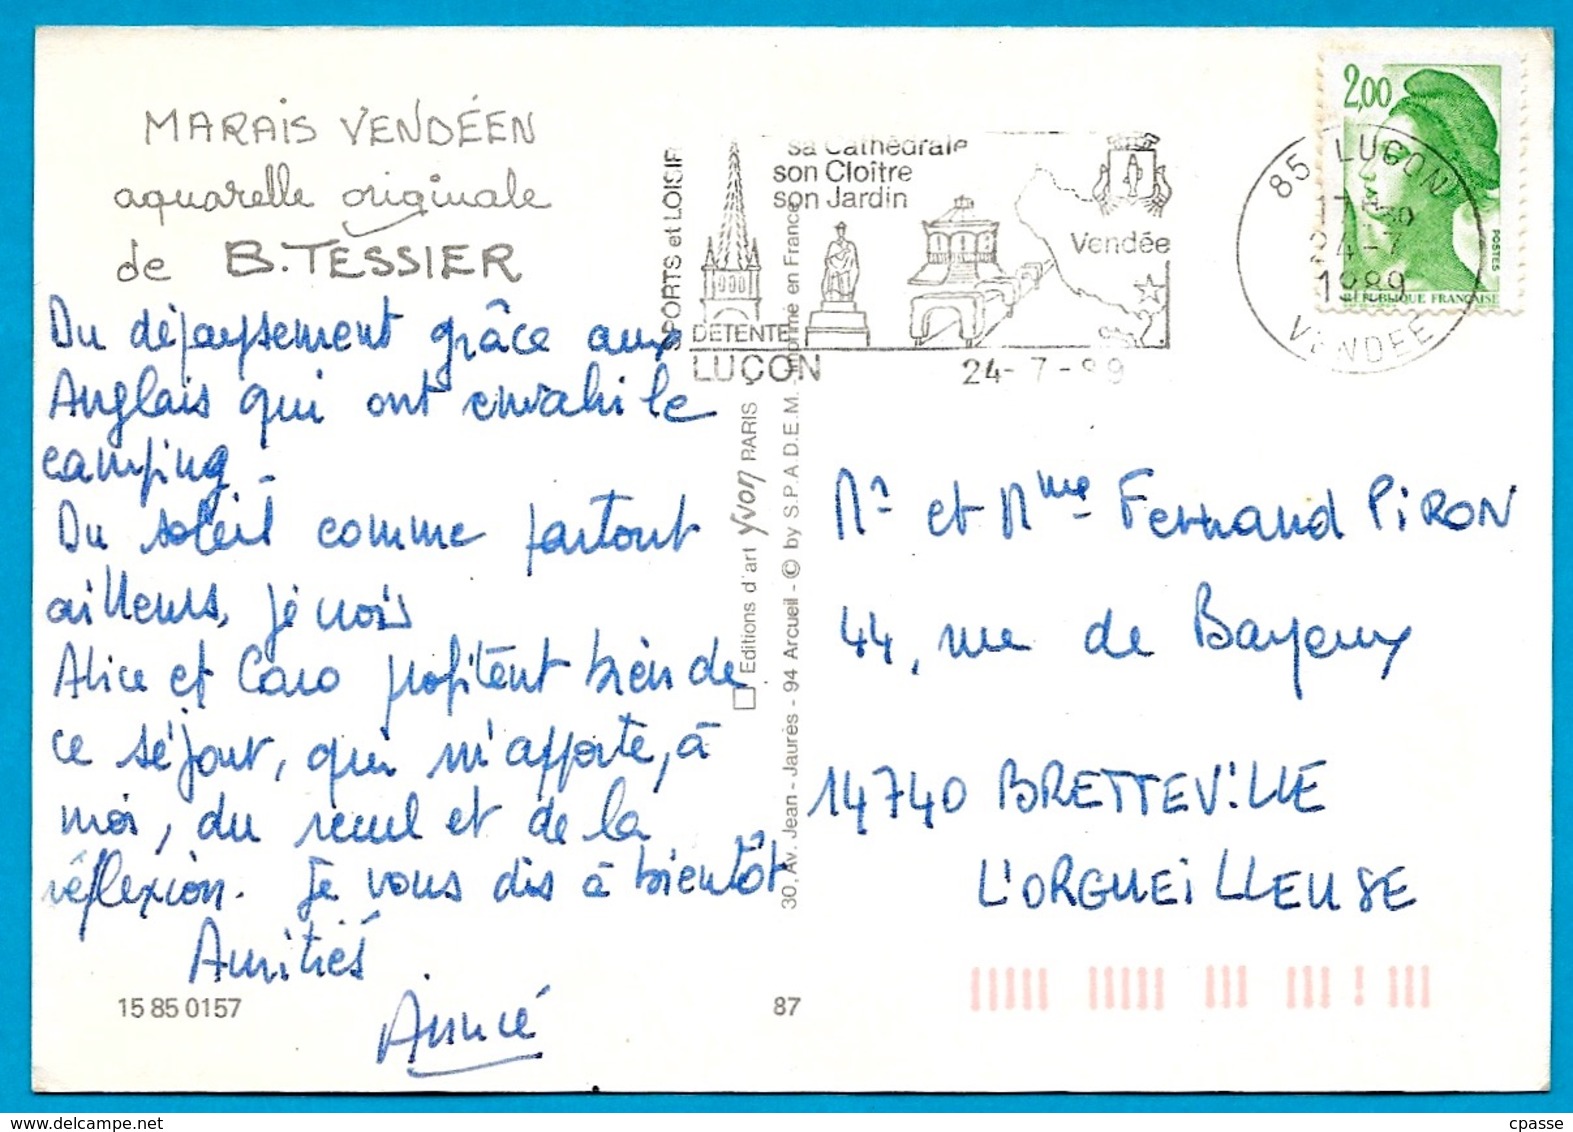 MARAIS VENDÉEN
aquarelle originale
de B. TESSIER
Du dépaysement grâce aux
Anglais qui ont envahi le
camping.
Du soleil comme partout
ailleurs, je vois
Alice et Caro profitent bien de
ce séjour, qui m'apporte, à
moi, du recul et de la
réflexion. Je vous dis à bientôt
Amitiés
Aimée
15 85 0157
87
SPORTS et LOISIR
DETENTE
LUÇON
sa Cathédrale
son Cloître
son Jardin
Vendée
24-7-89
85 LUÇON
24-7
1989
VENDEE
2,00
POSTES
RÉPUBLIQUE FRANÇAISE
Editions d'art yvon PARIS
30, Av. Jean-Jaurès - 94 Arcueil - © by S.P.A.D.E.M. - Imprimé en France
Mr et Mme Fernand PIRON
44, rue de Bayeux
14740 BRETTEVILLE
L'ORGUEILLEUSE
cpasse